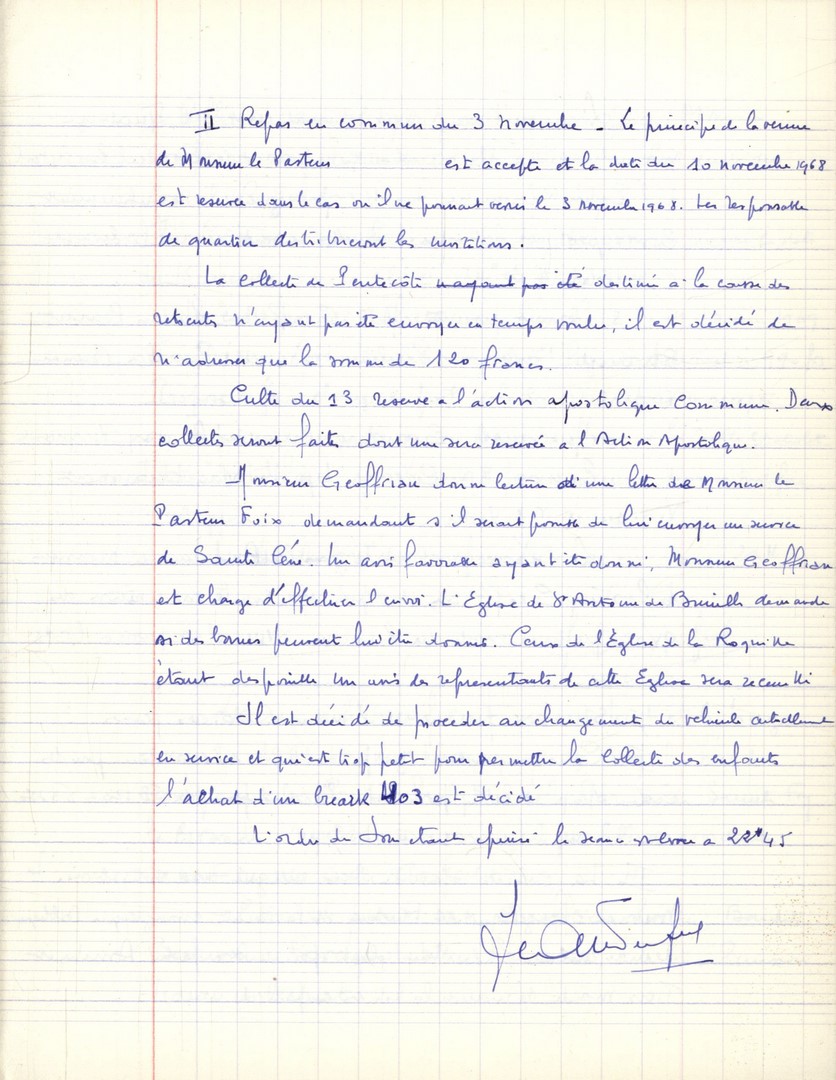 II Repas en commun du 3 novembre - Le principe de la venue
de Monsieur le Pasteur est accepté et la date du 10 novembre 1968
est reservée dans le cas ou il ne pourrait venir le 3 novembre 1968. Les responsable
de quartier distribueront les invitations.
La collecte de Pentecôte n'ayant pas été destinée a la caisse des
retraites n'ayant pas été envoyer en temps voulu, il est décidé de
n'adresser que la somme de 120 francs.
Culte du 13 reservé a l'action apostolique Commune. Deux
collectes seront faites dont une sera reservée a l'Action Apostolique.
Monsieur Geoffriau donne lecture d'une lettre de Monsieur le
Pasteur Foix demandant s'il serait possible de lui envoyer un service
de Sainte Cène. Un avis favorable ayant été donné, Monsieur Geoffriau
est chargé d'effectuer l'envoi. L'Eglise de St Antoine de Breuilh demande
si des bancs peuvent lui être donnés. Ceux de l'Église de la Roquille
étant disponible un avis des representants de cette Eglise sera recueilli
Il est décidé de proceder au changement du vehicule actuellement
en service et qui est trop petit pour permettre la collecte des enfants
l'achat d'un break 403 est décidé
L'ordre du Jour étant épuisé la seance est levée a 22h45